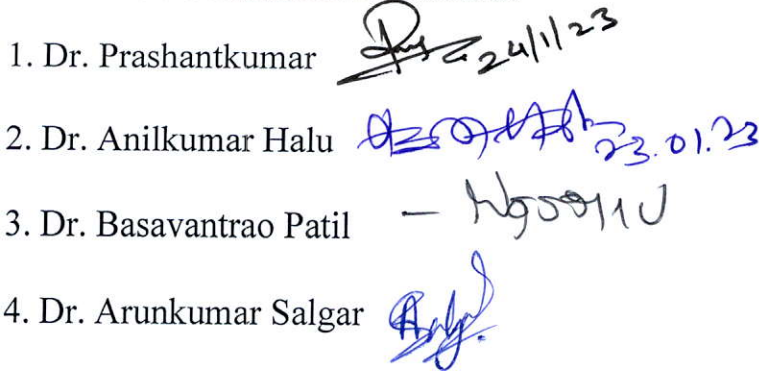 1. Dr. Prashantkumar 24/1/23
2. Dr. Anilkumar Halu 23.01.23
3. Dr. Basavantrao Patil –
4. Dr. Arunkumar Salgar